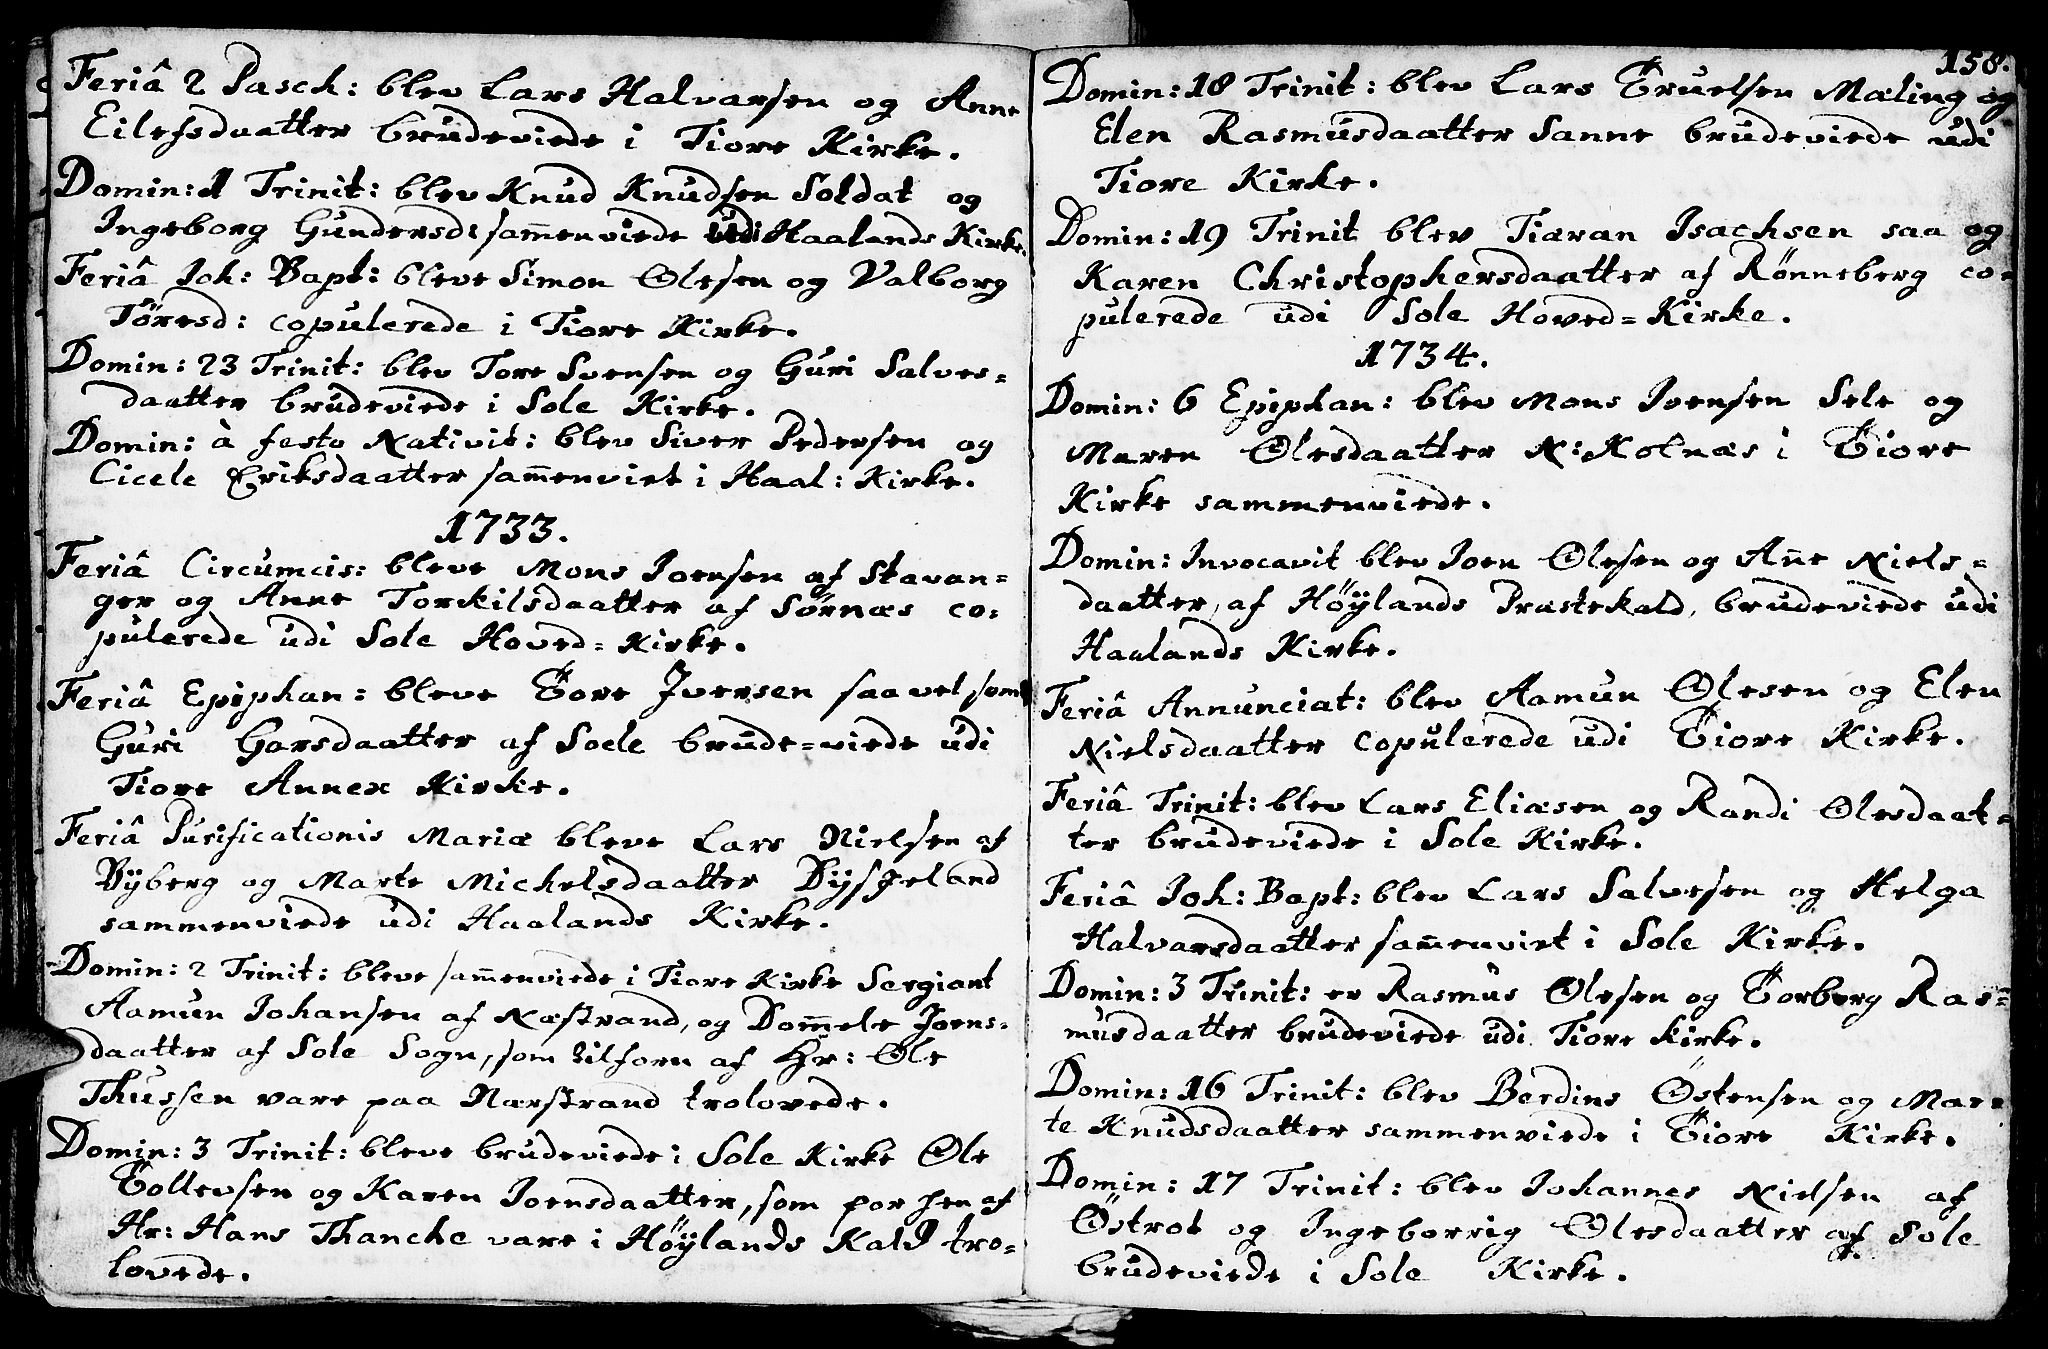 Feriâ 2 Pasch: blev Lars Halvarsen og Anne
Eilefsdaatter brudeviede i Tiore Kirke.
Domin: 1 Trinit: blev Knud Knudsen Soldat og
Ingeborg Gundersd: sam̄enviede udi Haalands Kirke.
Feriâ Joh: Bapt: bleve Simon Olesen og Valborg
Töresd: copulerede i Tiore Kirke.
Domin: 23 Trinit: blev Tore Svensen og Guri Salves=
daatter brudeviede i Sole Kirke.
Domin: à festo Nativit: blev Siver Pedersen og
Cicele Eriksdaatter sam̄enviet i Haal: Kirke.
1733.
Feriâ Circumcis: bleve Mons Joensen af Stavan=
ger og Anne Torkilsdaatter af Sörnæs co=
pulerede udi Sole Hoved=Kirke.
Feriâ Epiphan= bleve Tore Iversen saavelsom
Guri Garsdaatter af Soele brude=viede udi
Tiore Annex Kirke.
Feriâ Purificationis Mariæ bleve Lars Nielsen af
Byberg og Marte Michelsdaatter
sammenviede udi Haalands Kirke.
Domin: 2 Trinit: bleve sam̄enviede i Tiore Kirke Sergiant
Aamun Johansen af Næstrand, og Dom̄ele Joens=
daatter af Sole Sogn, som tilforn af Hr: Ole
Thussen vare paa Nærstrand trolovede.
Domin: 3 Trinit: bleve brudeviede i Sole Kirke Ole
Tollevsen og Karen Joensdaatter, som for hen af
Hr: Hans Thanche vare i Höylands Kald tro=
lovede.
158.
Domin: 18 Trinit: blev Lars Truelsen Mæling og
Elen Rasmusdaatter Sanne brudeviede udi
Tiore Kirke.
Domin: 19 Trinit blev Tiæran Isachsen saa og
Karen Christophersdaatter af Rønneberg co=
pulerede udi Sole Hoved=Kirke.
1734.
Domin: 6 Epiphan: blev Mons Joensen Sele og
Maren Olesdaatter N: Kolnæs i Tiore
Kirke sammenviede.
Domin: Invocavit blev Joen Olesen og An̄e Niels=
daatter, af Höylands Præstekald, brudeviede udi
Haalands Kirke.
Feriâ Annunciat: blev Aamun Olesen og Elen
Nielsdaatter copulerede udi Tiore Kirke.
Feriâ Trinit: blev Lars Eliæsen og Randi Olesdaat=
ter brudeviede i Sole Kirke.
Feriâ Joh: Bapt: blev Lars Salvesen og Helga
Halvarsdaatter sam̄enviet i Sole Kirke.
Domin: 3 Trinit: er Rasmus Olesen og Torberg Ras=
musdaatter brudeviede udi Tiore Kirke.
Domin: 16 Trinit: blev Berdins Östensen og Mar=
te Knudsdaatter sammenviede i Tiore Kirke.
Domin: 17 Trinit: blev Johannes Nielsen af
Östrot og Ingeborrig Olesdaatter af Sole
brudeviede i Sole Kirke.